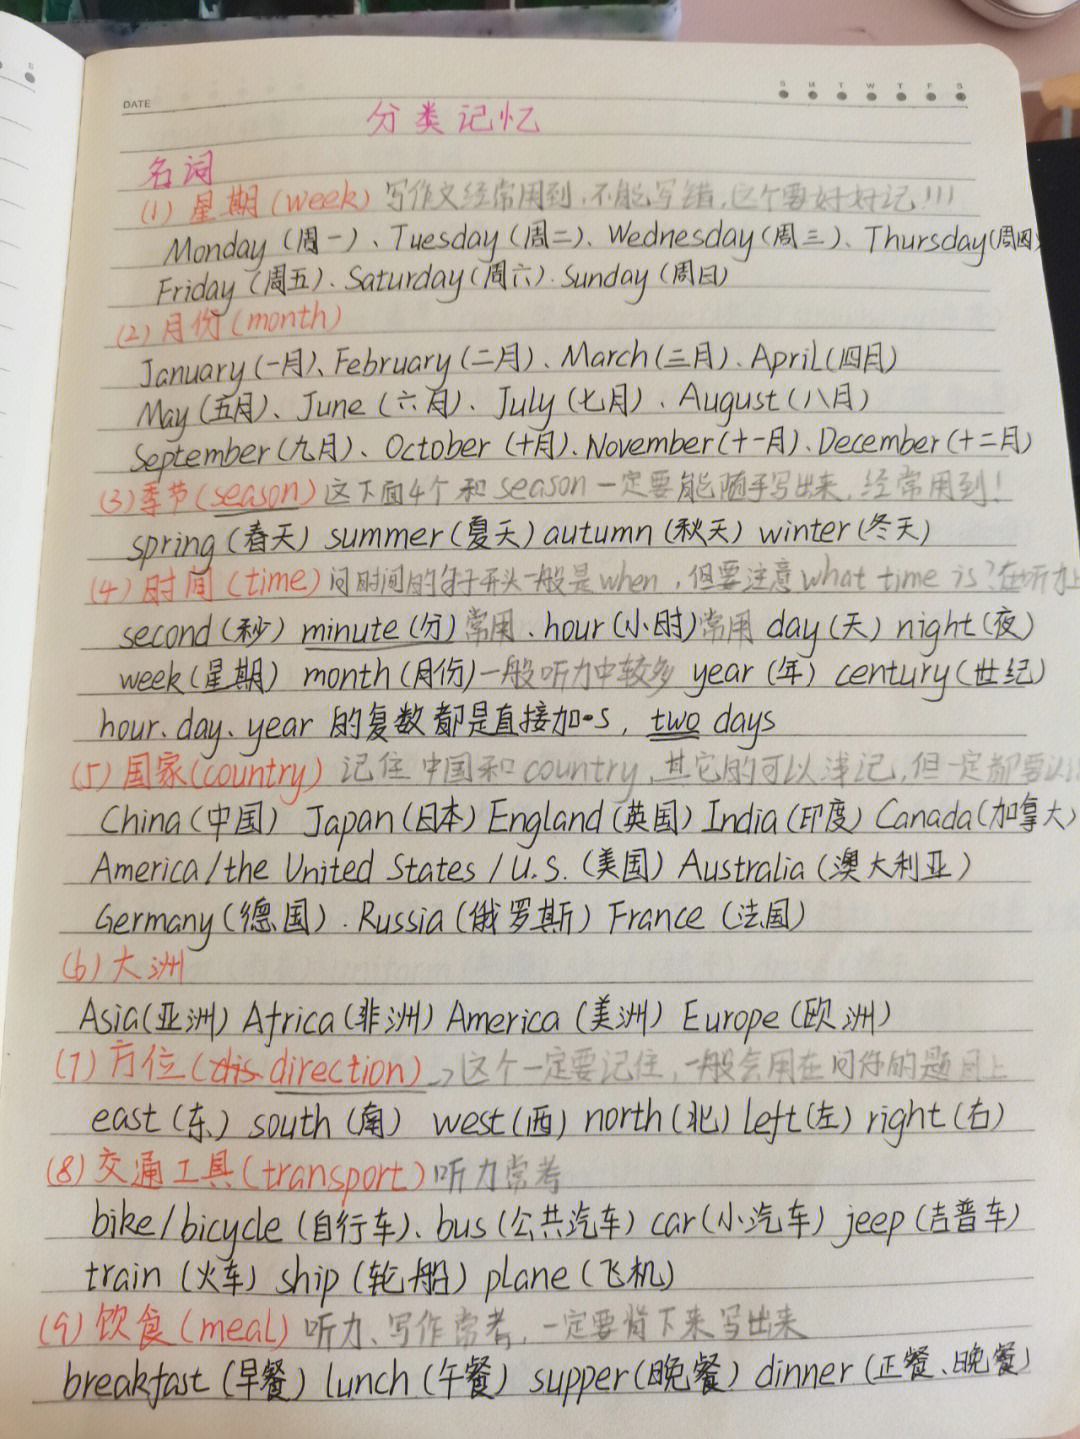 DATE
S M T W T F S
分类记忆
名词
(1) 星期(week) 写作文经常用到,不能写错,这个要好好记!!!
Monday(周一)、Tuesday(周二)、Wednesday(周三)、Thursday(周四)
Friday(周五)、Saturday(周六)、Sunday(周日)
(2) 月份(month)
January(一月)、February(二月)、March(三月)、April(四月)
May(五月)、June(六月)、July(七月)、August(八月)
September(九月)、October(十月)、November(十一月)、December(十二月)
(3) 季节(season) 这下面4个和season一定要能随手写出来,经常用到!
spring(春天) summer(夏天) autumn(秋天) winter(冬天)
(4) 时间(time) 问时间的句子开头一般是when,但要注意what time is?在听力上
second(秒) minute(分)常用、hour(小时)常用 day(天) night(夜)
week(星期) month(月份)一般听力中较多 year(年) century(世纪)
hour、day、year 的复数都是直接加·s, two days
(5) 国家(country) 记住中国和country,其它的可以浅记,但一定都要认
China(中国) Japan(日本) England(英国) India(印度) Canada(加拿大)
America/the United States/U.S.(美国) Australia(澳大利亚)
Germany(德国)、Russia(俄罗斯) France(法国)
(6) 大洲
Asia(亚洲) Africa(非洲) America(美洲) Europe(欧洲)
(7) 方位(dis direction)→这个一定要记住,一般会用在问你的题目上
east(东) south(南) west(西) north(北) left(左) right(右)
(8) 交通工具(transport) 听力常考
bike/bicycle(自行车)、bus(公共汽车) car(小汽车) jeep(吉普车)
train(火车) ship(轮船) plane(飞机)
(9) 饮食(meal) 听力、写作常考,一定要背下来写出来
breakfast(早餐) lunch(午餐) supper(晚餐) dinner(正餐、晚餐)